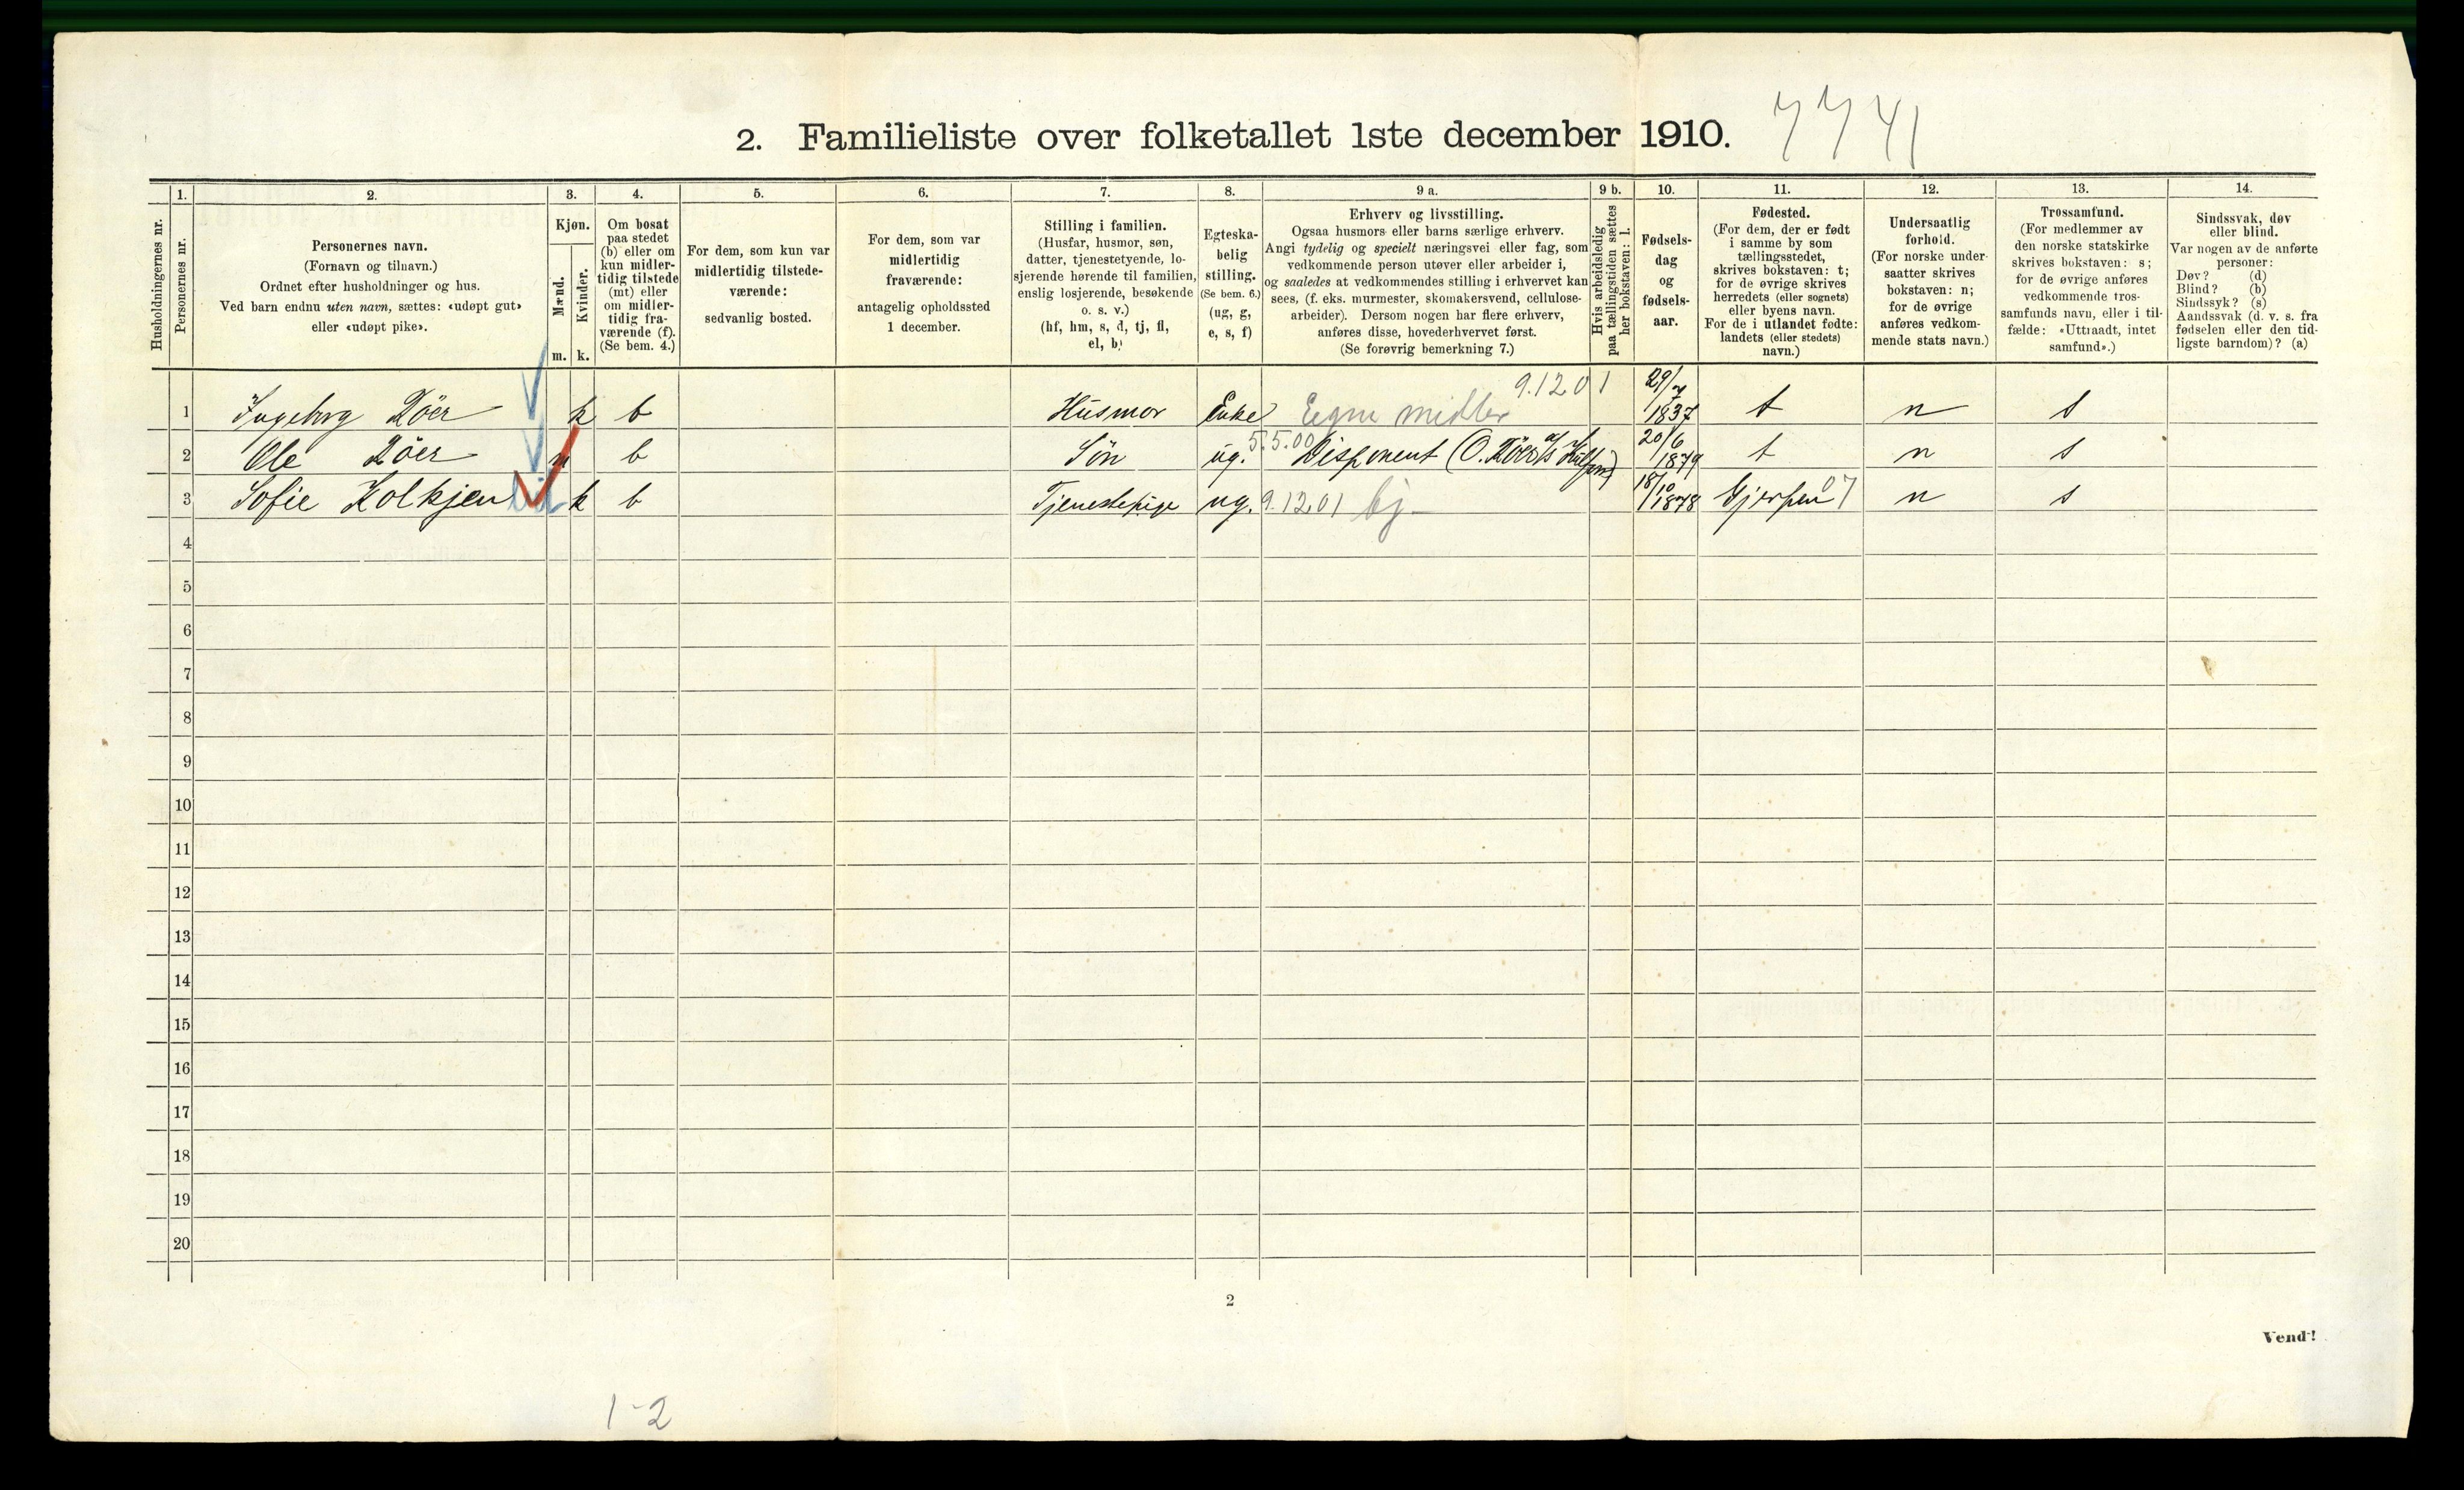 2. Familieliste over folketallet 1ste december 1910. 7741
Husholdningernes nr.
1. Personernes nr.
2. Personernes navn.
(Fornavn og tilnavn.)
Ordnet efter husholdninger og hus.
Ved barn endnu uten navn, sættes: «udøpt gut»
eller «udøpt pike».
3. Kjøn.
Mænd. m.
Kvinder. k.
4. Om bosat
paa stedet
(b) eller om
kun midler-
tidig tilstede
(mt) eller
om midler-
tidig fra-
værende (f).
(Se bem. 4.)
5. For dem, som kun var
midlertidig tilstede-
værende:
sedvanlig bosted.
6. For dem, som var
midlertidig
fraværende:
antagelig opholdssted
1 december.
7. Stilling i familien.
(Husfar, husmor, søn,
datter, tjenestetyende, lo-
sjerende hørende til familien,
enslig losjerende, besøkende
o. s. v.)
(hf, hm, s, d, tj, fl,
el, b)
8. Egteska-
belig
stilling.
(Se bem. 6.)
(ug, g,
e, s, f)
9 a. Erhverv og livsstilling.
Ogsaa husmors eller barns særlige erhverv.
Angi tydelig og specielt næringsvei eller fag, som
vedkommende person utøver eller arbeider i,
og saaledes at vedkommendes stilling i erhvervet kan
sees, (f. eks. murmester, skomakersvend, cellulose-
arbeider). Dersom nogen har flere erhverv,
anføres disse, hovederhvervet først.
(Se forøvrig bemerkning 7.)
9 b. Hvis arbeidsledig
paa tællingstiden sættes
her bokstaven: l.
10. Fødsels-
dag
og
fødsels-
aar.
11. Fødested.
(For dem, der er født
i samme by som
tællingsstedet,
skrives bokstaven: t;
for de øvrige skrives
herredets (eller sognets)
eller byens navn.
For de i utlandet fødte:
landets (eller stedets)
navn.)
12. Undersaatlig
forhold.
(For norske under-
saatter skrives
bokstaven: n;
for de øvrige
anføres vedkom-
mende stats navn.)
13. Trossamfund.
(For medlemmer av
den norske statskirke
skrives bokstaven: s;
for de øvrige anføres
vedkommende tros-
samfunds navn, eller i til-
fælde: «Uttraadt, intet
samfund».)
14. Sindssvak, døv
eller blind.
Var nogen av de anførte
personer:
Døv? (d)
Blind? (b)
Sindssyk? (s)
Aandssvak (d. v. s. fra
fødselen eller den tid-
ligste barndom)? (a)
1 Ingeborg Röer k b Husmor Enke Egne midler 9.12.01 29/7 1837 t n s
2 Ole Röer m b Sön ug. 5.5.00 Disponent (O. Röer 20/6 1879 t n s
3 Sofie Kolkjen k b Tjenestepige ug. 9.12.01 bj 18/10 1878 Gjerpen 07 n s
4
5
6
7
8
9
10
11
12
13
14
15
16
17
18
19
20
2
Vend!
1-2